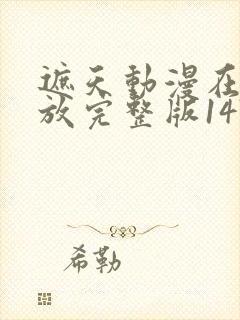 遮天動漫在
放完整版14
希勒